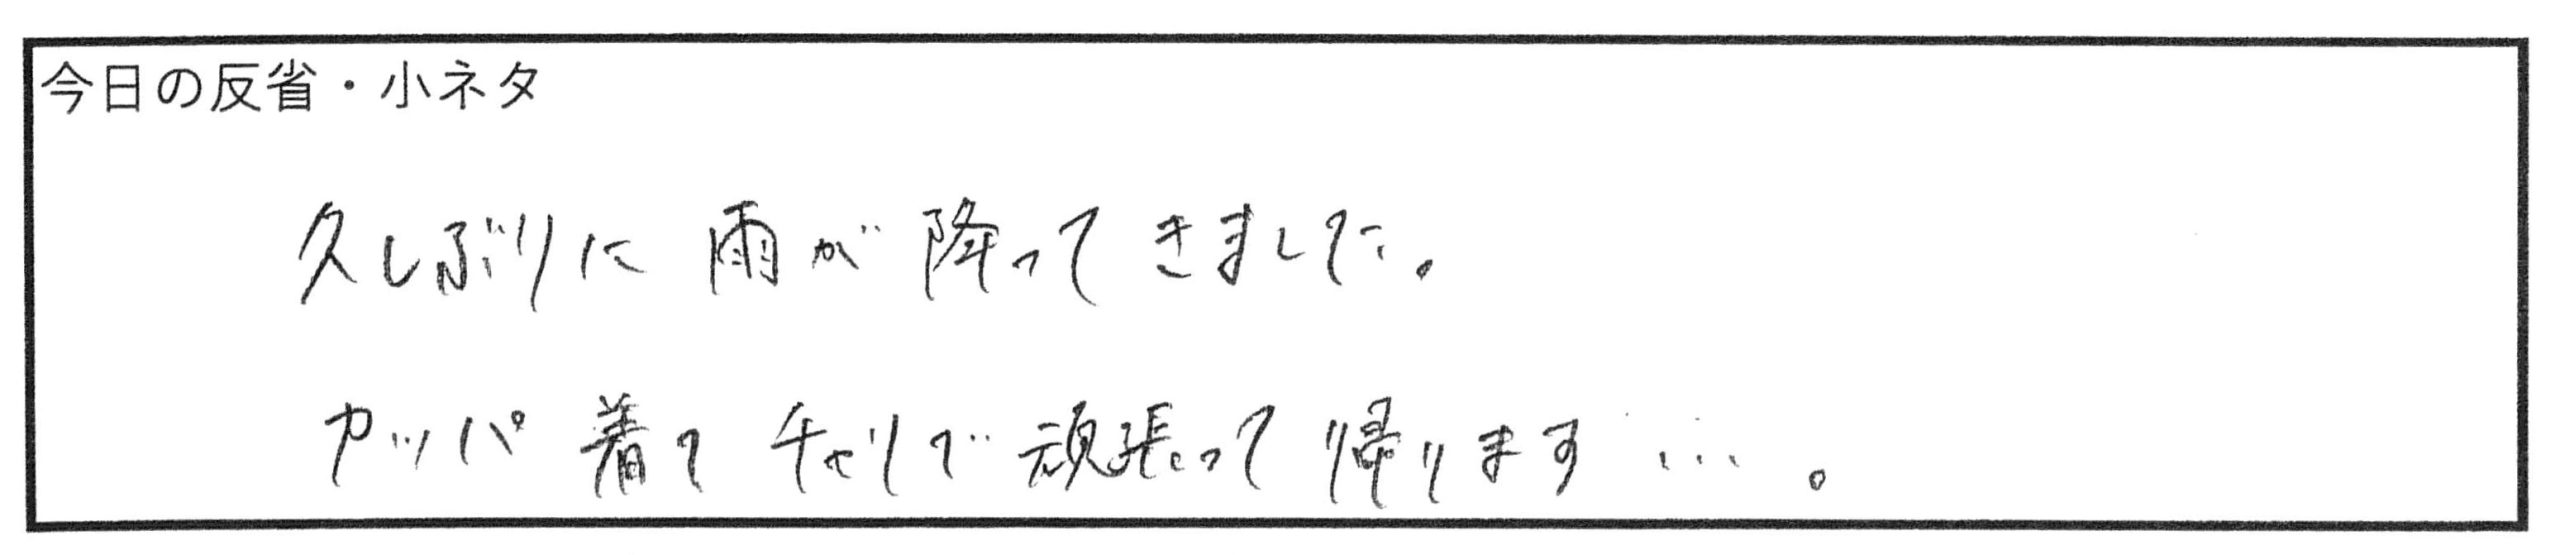 今日の反省・小ネタ
久しぶりに雨が降ってきました。
カッパ着てチャリで頑張って帰ります…。